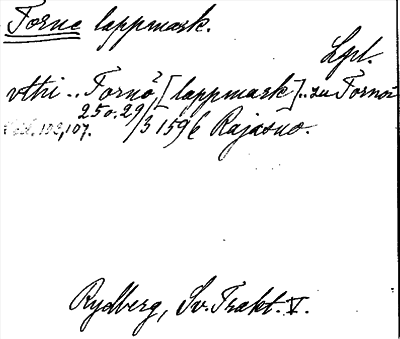 Torne lappmark.
Lpl.
vthi .. Tornö² [lappmark] .. zu Tornöö
25 o. 29/3 1596 Rajasuo.
108, 107.
Rydberg, Sv. Trakt. V.